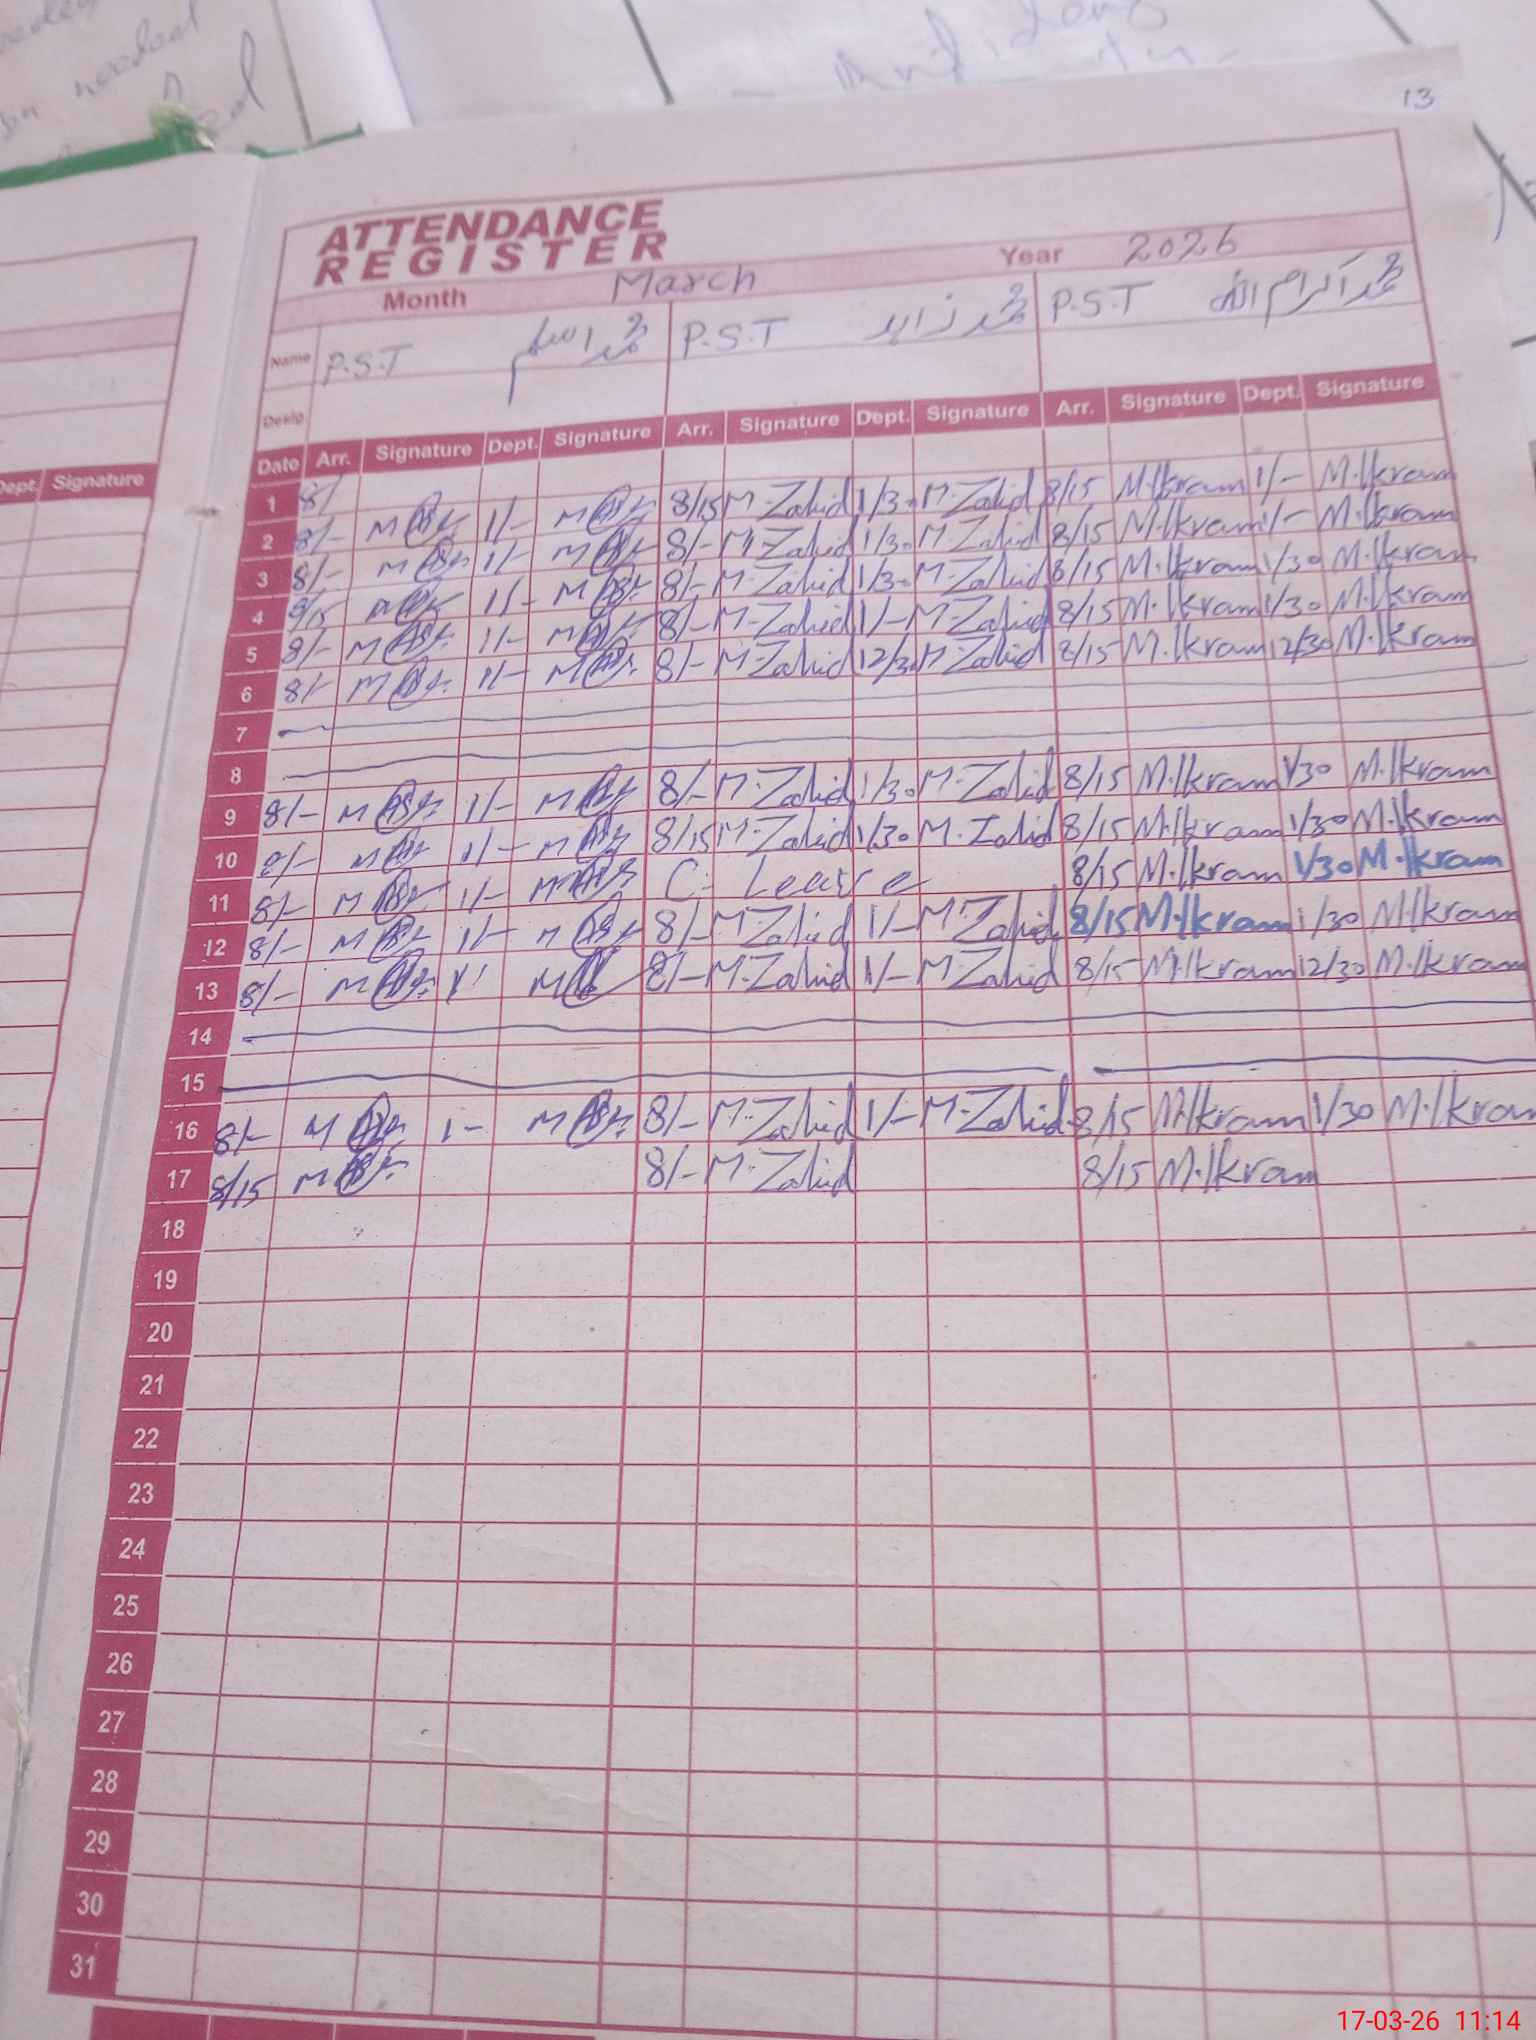 13
ATTENDANCE
REGISTER
Month March Year 2026
Name P.S.T محمد اسلم P.S.T محمد زاہد P.S.T محمد اکرام اللہ
Desig
Dept. Signature
Date Arr. Signature Dept. Signature Arr. Signature Dept. Signature Arr. Signature Dept. Signature
1 8/
2 8/- 1/- 8/15 M.Zahid 1/30 M.Zahid 8/15 M.Ikram 1/- M.Ikram
3 8/- 1/- 8/- M.Zahid 1/30 M.Zahid 8/15 M.Ikram 1/- M.Ikram
4 8/15 1/- 8/- M.Zahid 1/30 M.Zahid 8/15 M.Ikram 1/30 M.Ikram
5 8/- 1/- 8/- M.Zahid 1/- M.Zahid 8/15 M.Ikram 1/30 M.Ikram
6 8/- 1/- 8/- M.Zahid 12/30 M.Zahid 8/15 M.Ikram 12/30 M.Ikram
7
8
9 8/- 1/- 8/- M.Zahid 1/30 M.Zahid 8/15 M.Ikram 1/30 M.Ikram
10 8/- 1/- 8/15 M.Zahid 1/30 M.Zahid 8/15 M.Ikram 1/30 M.Ikram
11 8/- 1/- C. Leave 8/15 M.Ikram 1/30 M.Ikram
12 8/- 1/- 8/- M.Zahid 1/- M.Zahid 8/15 M.Ikram 1/30 M.Ikram
13 8/- 8/- M.Zahid 1/- M.Zahid 8/15 M.Ikram 12/30 M.Ikram
14
15
16 8/- 1- 8/- M.Zahid 1/- M.Zahid 8/15 M.Ikram 1/30 M.Ikram
17 8/15 8/- M.Zahid 8/15 M.Ikram
18
19
20
21
22
23
24
25
26
27
28
29
30
31
17-03-26 11:14